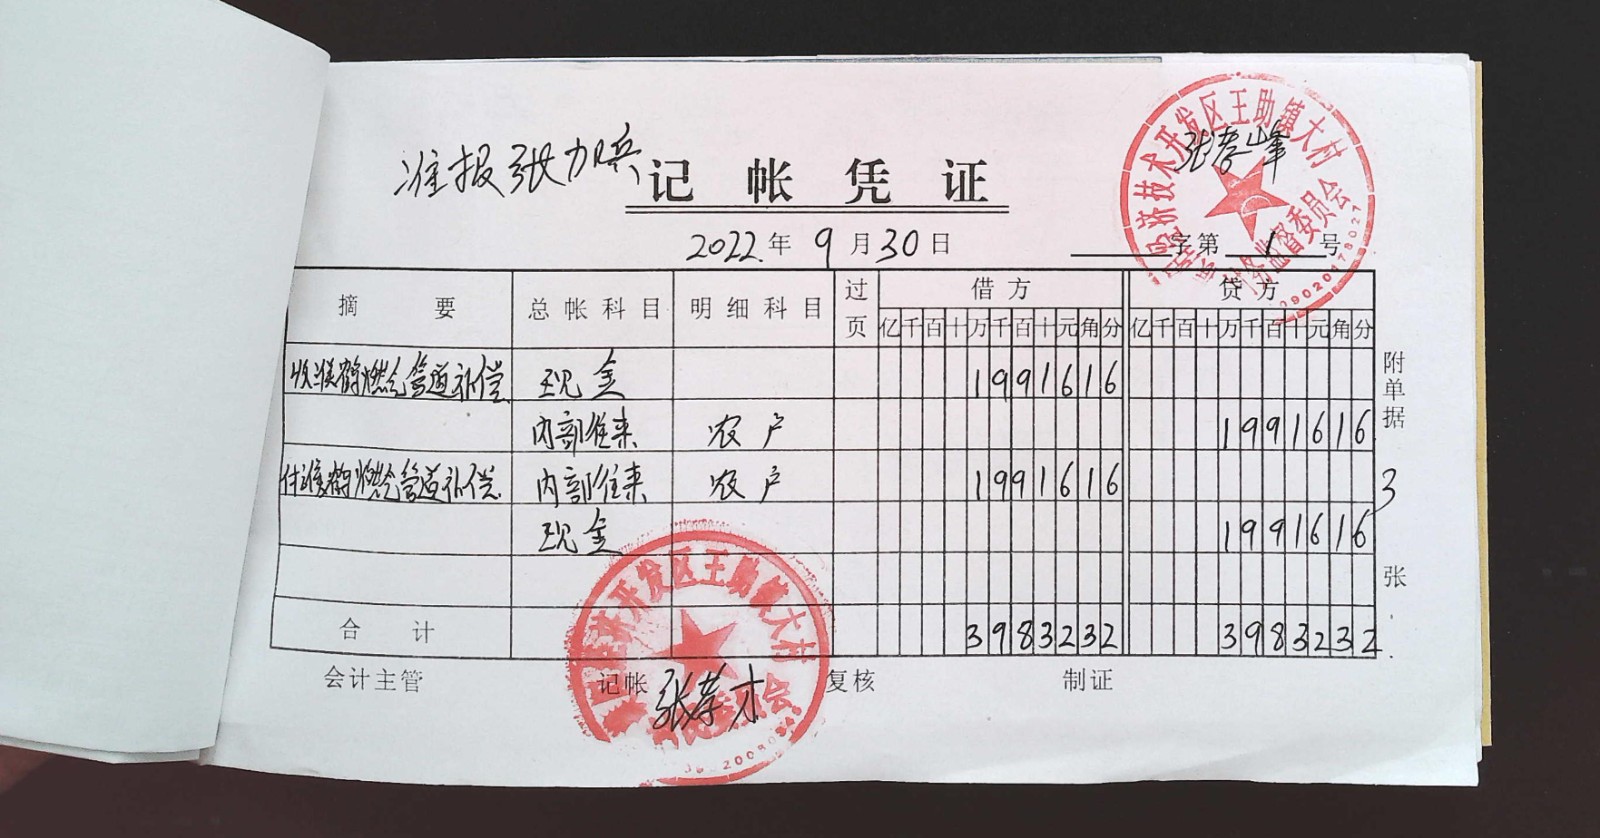 准报张力兵
记帐凭证
2022年9月30日
字第1号
摘要 总帐科目 明细科目 过页 借方 贷方
亿千百十万千百十元角分 亿千百十万千百十元角分
收淮鹤燃气管道补偿 现金 1991616
内部往来 农户 1991616
付淮鹤燃气管道补偿 内部往来 农户 1991616
现金 1991616
合计 3983232 3983232
附单据3张
会计主管 记帐 张孝才 复核 制证
经济技术开发区王助镇大村
村务监督委员会
张孝峰
开发区王助镇大村